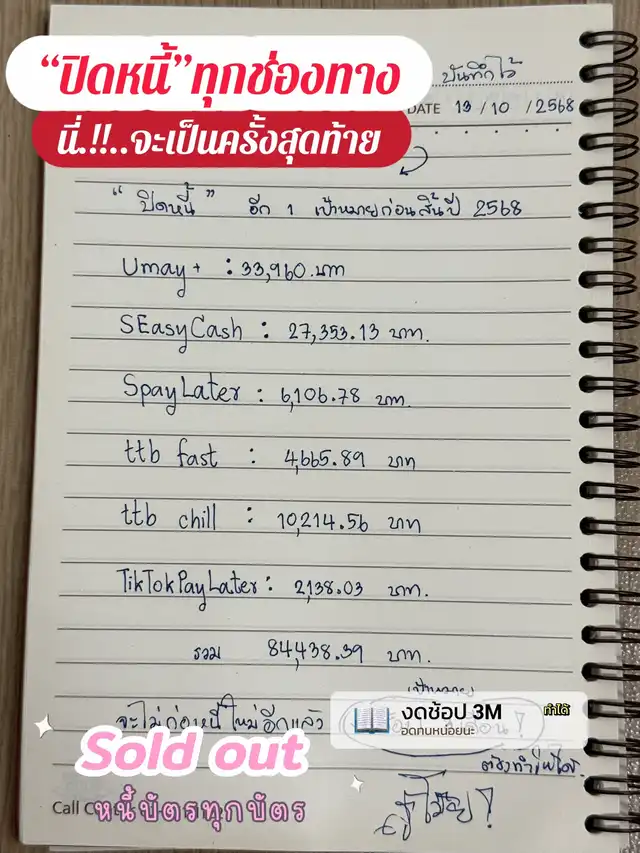 “ปิดหนี้”ทุกช่องทาง
บันทึกไว้
นี่.!!..จะเป็นครั้งสุดท้าย
DATE 13 / 10 / 2568
“ปิดหนี้” อีก 1 เป้าหมายก่อนสิ้นปี 2568
Umay+ : 33,960.บาท
SEasyCash : 27,353.13 บาท.
SpayLater : 6,106.78 บาท.
ttb fast : 4,665.89 บาท
ttb chill : 10,214.56 บาท
TikTokPayLater : 2,138.03 บาท.
รวม 84,438.39 บาท.
เป้าหมาย
จะไม่ก่อหนี้ใหม่อีกแล้ว
งดช้อป 3M
ทำได้
อดทนหน่อยนะ
Sold out
ต้องทำให้ได้.
Call C
หนี้บัตรทุกบัตร